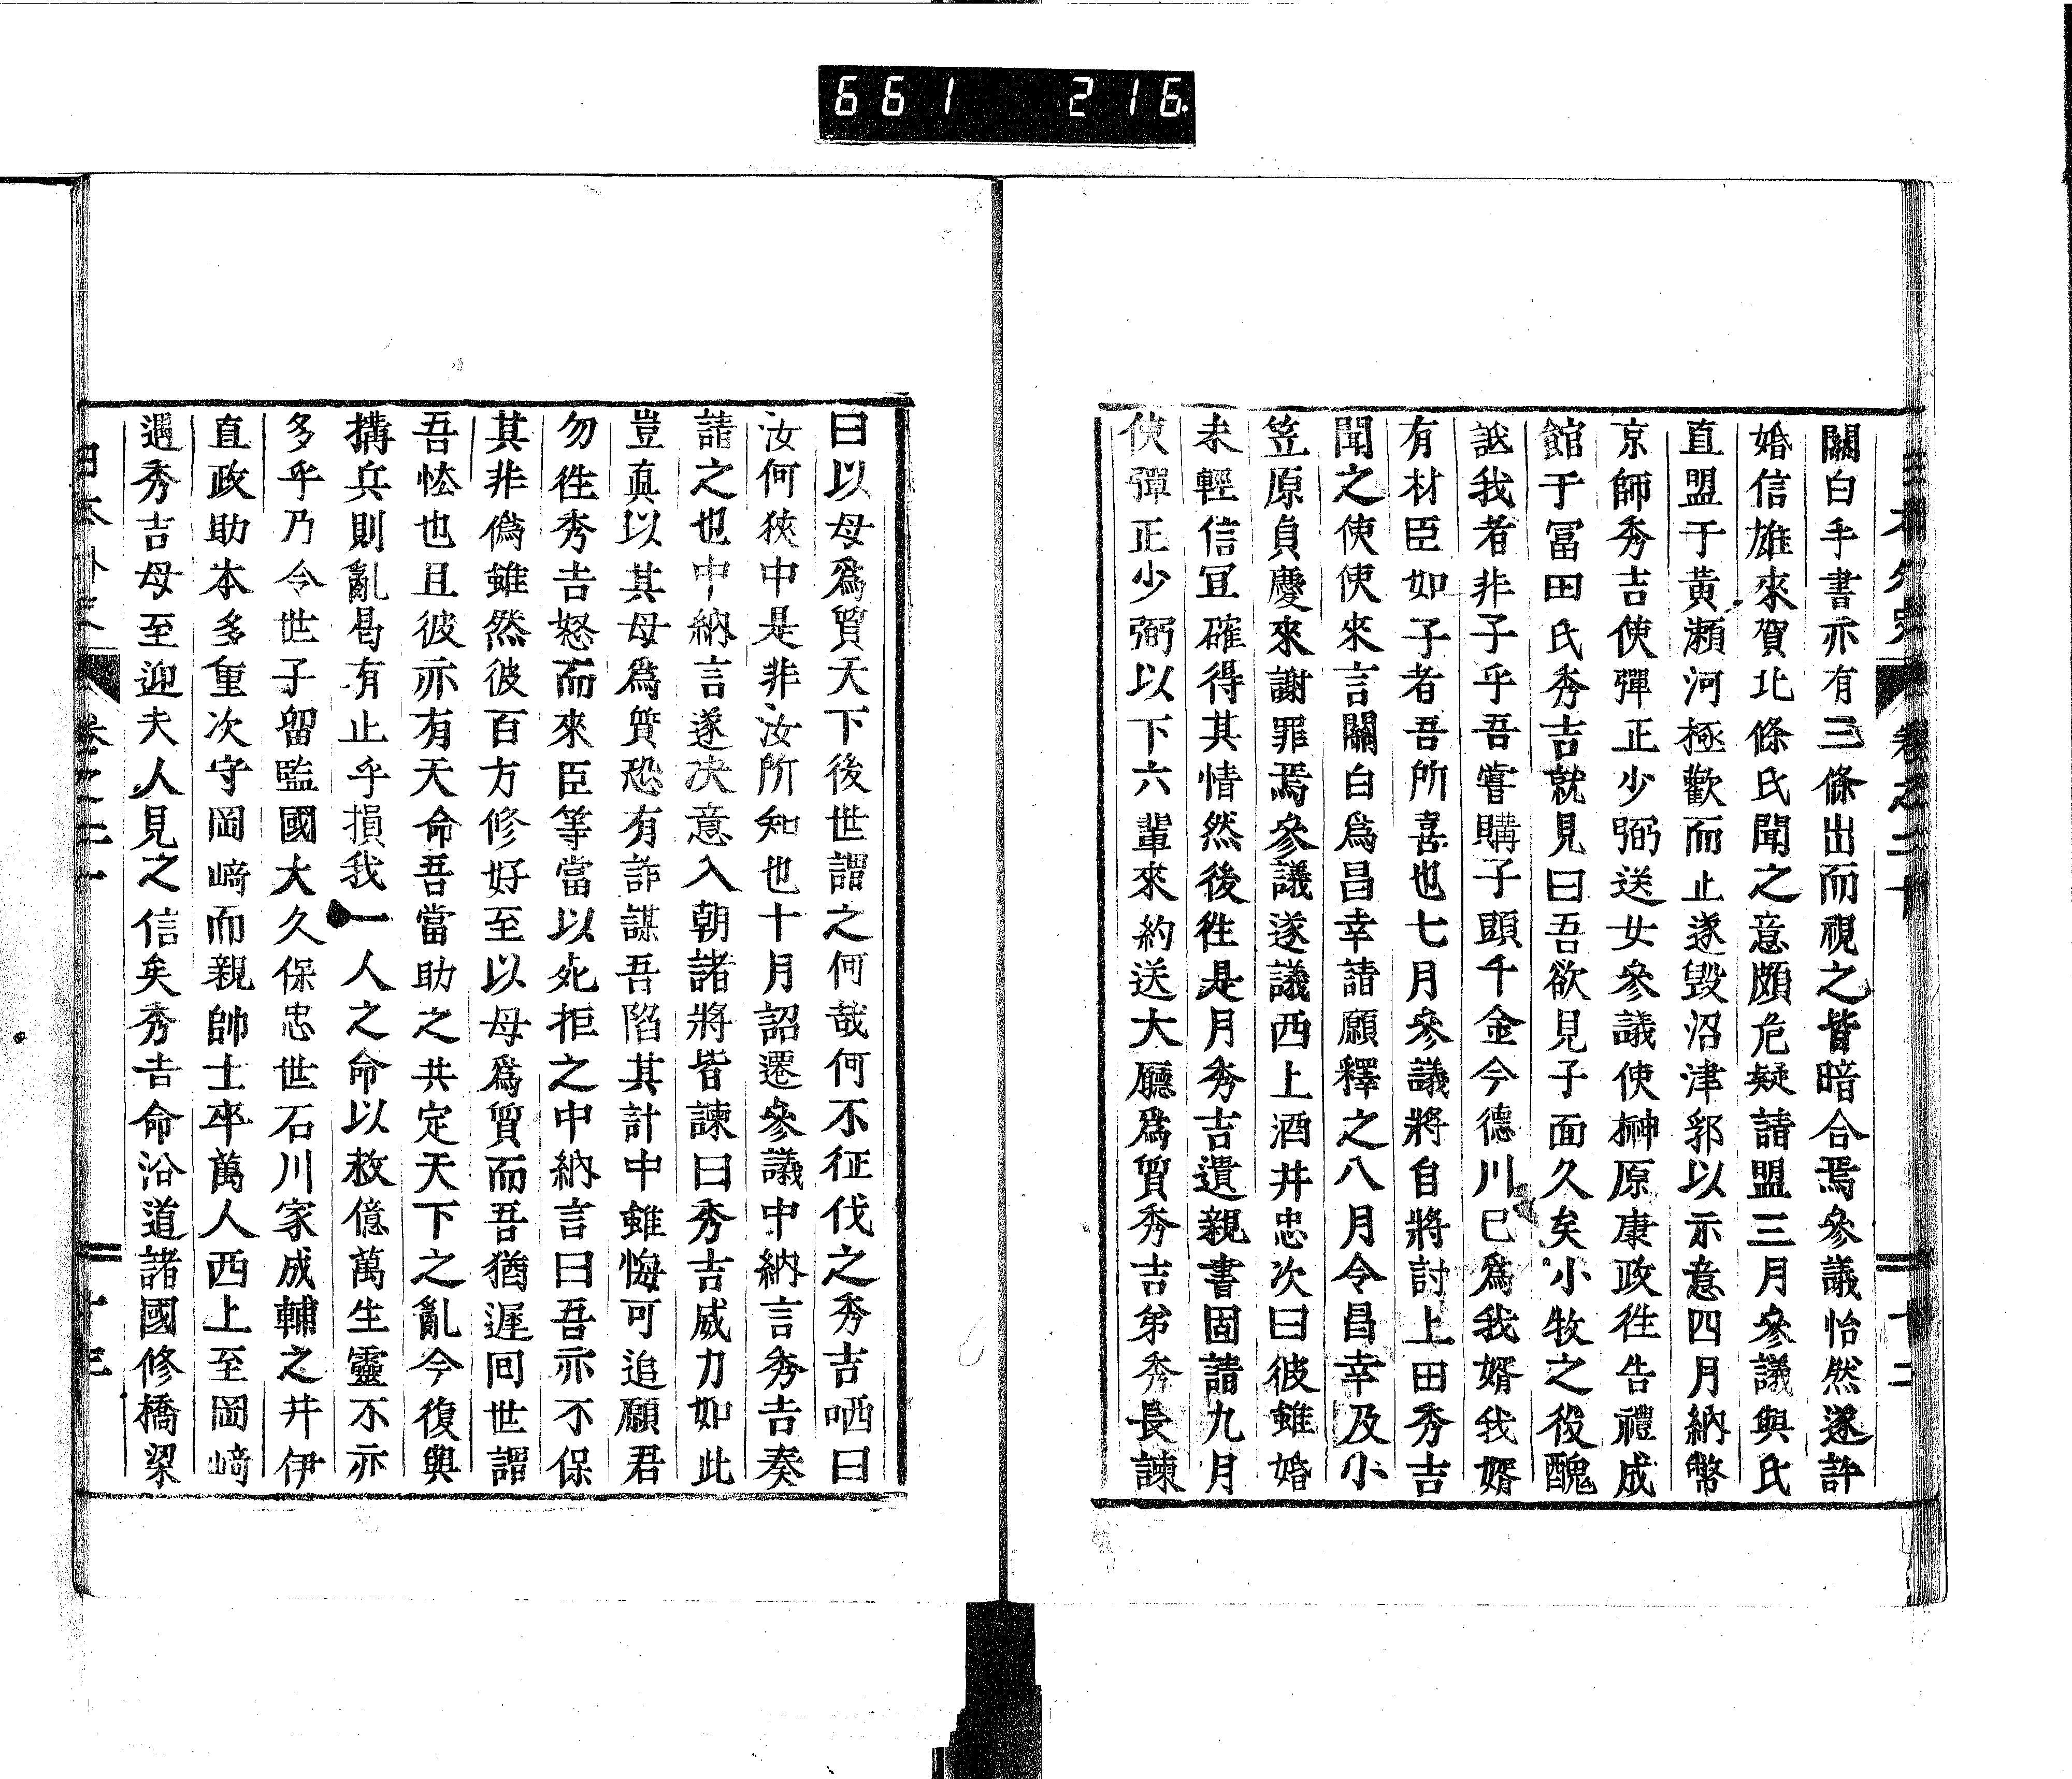 661 216.
日本外史 卷之二十 十二
關白手書亦有三條出而視之皆暗合焉參議怡然遂許
婚信雄來賀北條氏聞之意頗危疑請盟三月參議與氏
直盟于黃瀨河極歡而止遂毀沼津郛以示意四月納幣
京師秀吉使彈正少弼送女參議使榊原康政徃告禮成
館于冨田氏秀吉就見曰吾欲見子面久矣小牧之役醜
詆我者非子乎吾嘗購子頭千金今德川巳爲我婿我婿
有材臣如子者吾所喜也七月參議將自將討上田秀吉
聞之使使來言關白爲昌幸請願釋之八月令昌幸及小
笠原貞慶來謝罪焉參議遂議西上酒井忠次曰彼雖婚
未輕信冝確得其情然後徃是月秀吉遺親書固請九月
使彈正少弼以下六輩來約送大廳爲質秀吉弟秀長諫
曰以母爲質天下後世謂之何哉何不征伐之秀吉哂曰
汝何狹中是非汝所知也十月詔遷參議中納言秀吉奏
請之也中納言遂决意入朝諸將皆諫曰秀吉威力如此
豈眞以其母爲質恐有詐謀吾陷其計中雖悔可追願君
勿徃秀吉怒而來臣等當以死拒之中納言曰吾亦不保
其非僞雖然彼百方修好至以母爲質而吾猶遲囘世謂
吾怯也且彼亦有天命吾當助之共定天下之亂今復與
搆兵則亂曷有止乎損我一人之命以救億萬生靈不亦
多乎乃令世子留監國大久保忠世石川家成輔之井伊
直政助本多重次守岡﨑而親帥士卒萬人西上至岡﨑
遇秀吉母至迎夫人見之信矣秀吉命沿道諸國修橋梁
日本外史 卷之二十 十三